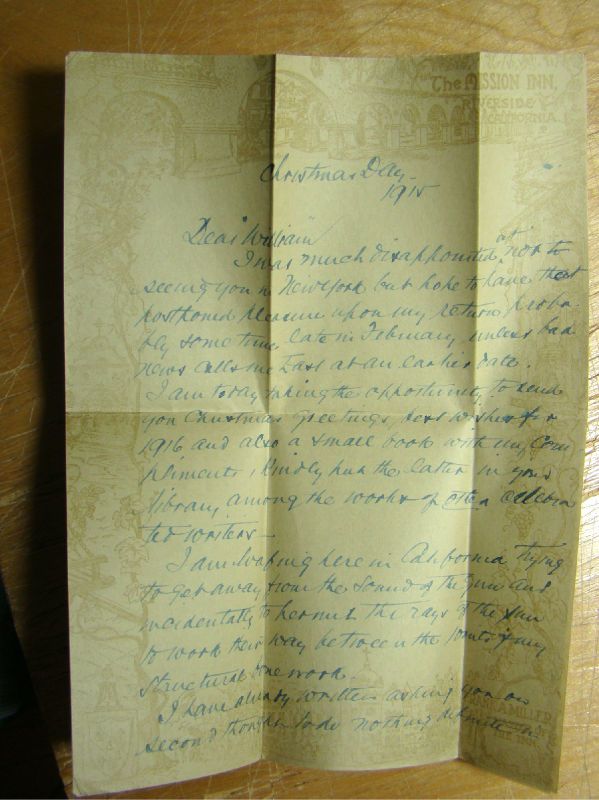 The MISSION INN,
RIVERSIDE
CALIFORNIA
Christmas Day -
1915
Dear "William"
I was much disappointed at not to
seeing you in New York but hope to have that
postponed pleasure upon my return proba-
bly some time late in February, unless bad
news calls me East at an earlier date.
I am today taking the opportunity to send
you Christmas Greetings, best wishes for
1916 and also a small book with my Com
pliments, Kindly put the latter in your
library among the works of other celebra
ted writers -
I am loafing here in California trying
to get away from the sound of the gun and
incidentally to permit the rays of the sun
to work their way between the joints of my
structural bone work.
I have already written asking you on
second thought to do nothing definite
FRANK A. MILLER
THE INN